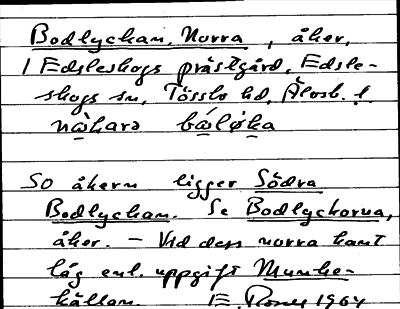 Bodlyckan, Norra, åker,
1 Edsleskogs prästgård, Edsle-
skogs sn, Tössbo hd, Älvsb. l.
nòhara bǽløka
So åkern ligger Södra
Bodlyckan. Se Bodlyckorna,
åker. – Vid dess norra kant
låg enl. uppgift Munke-
källan. 1964